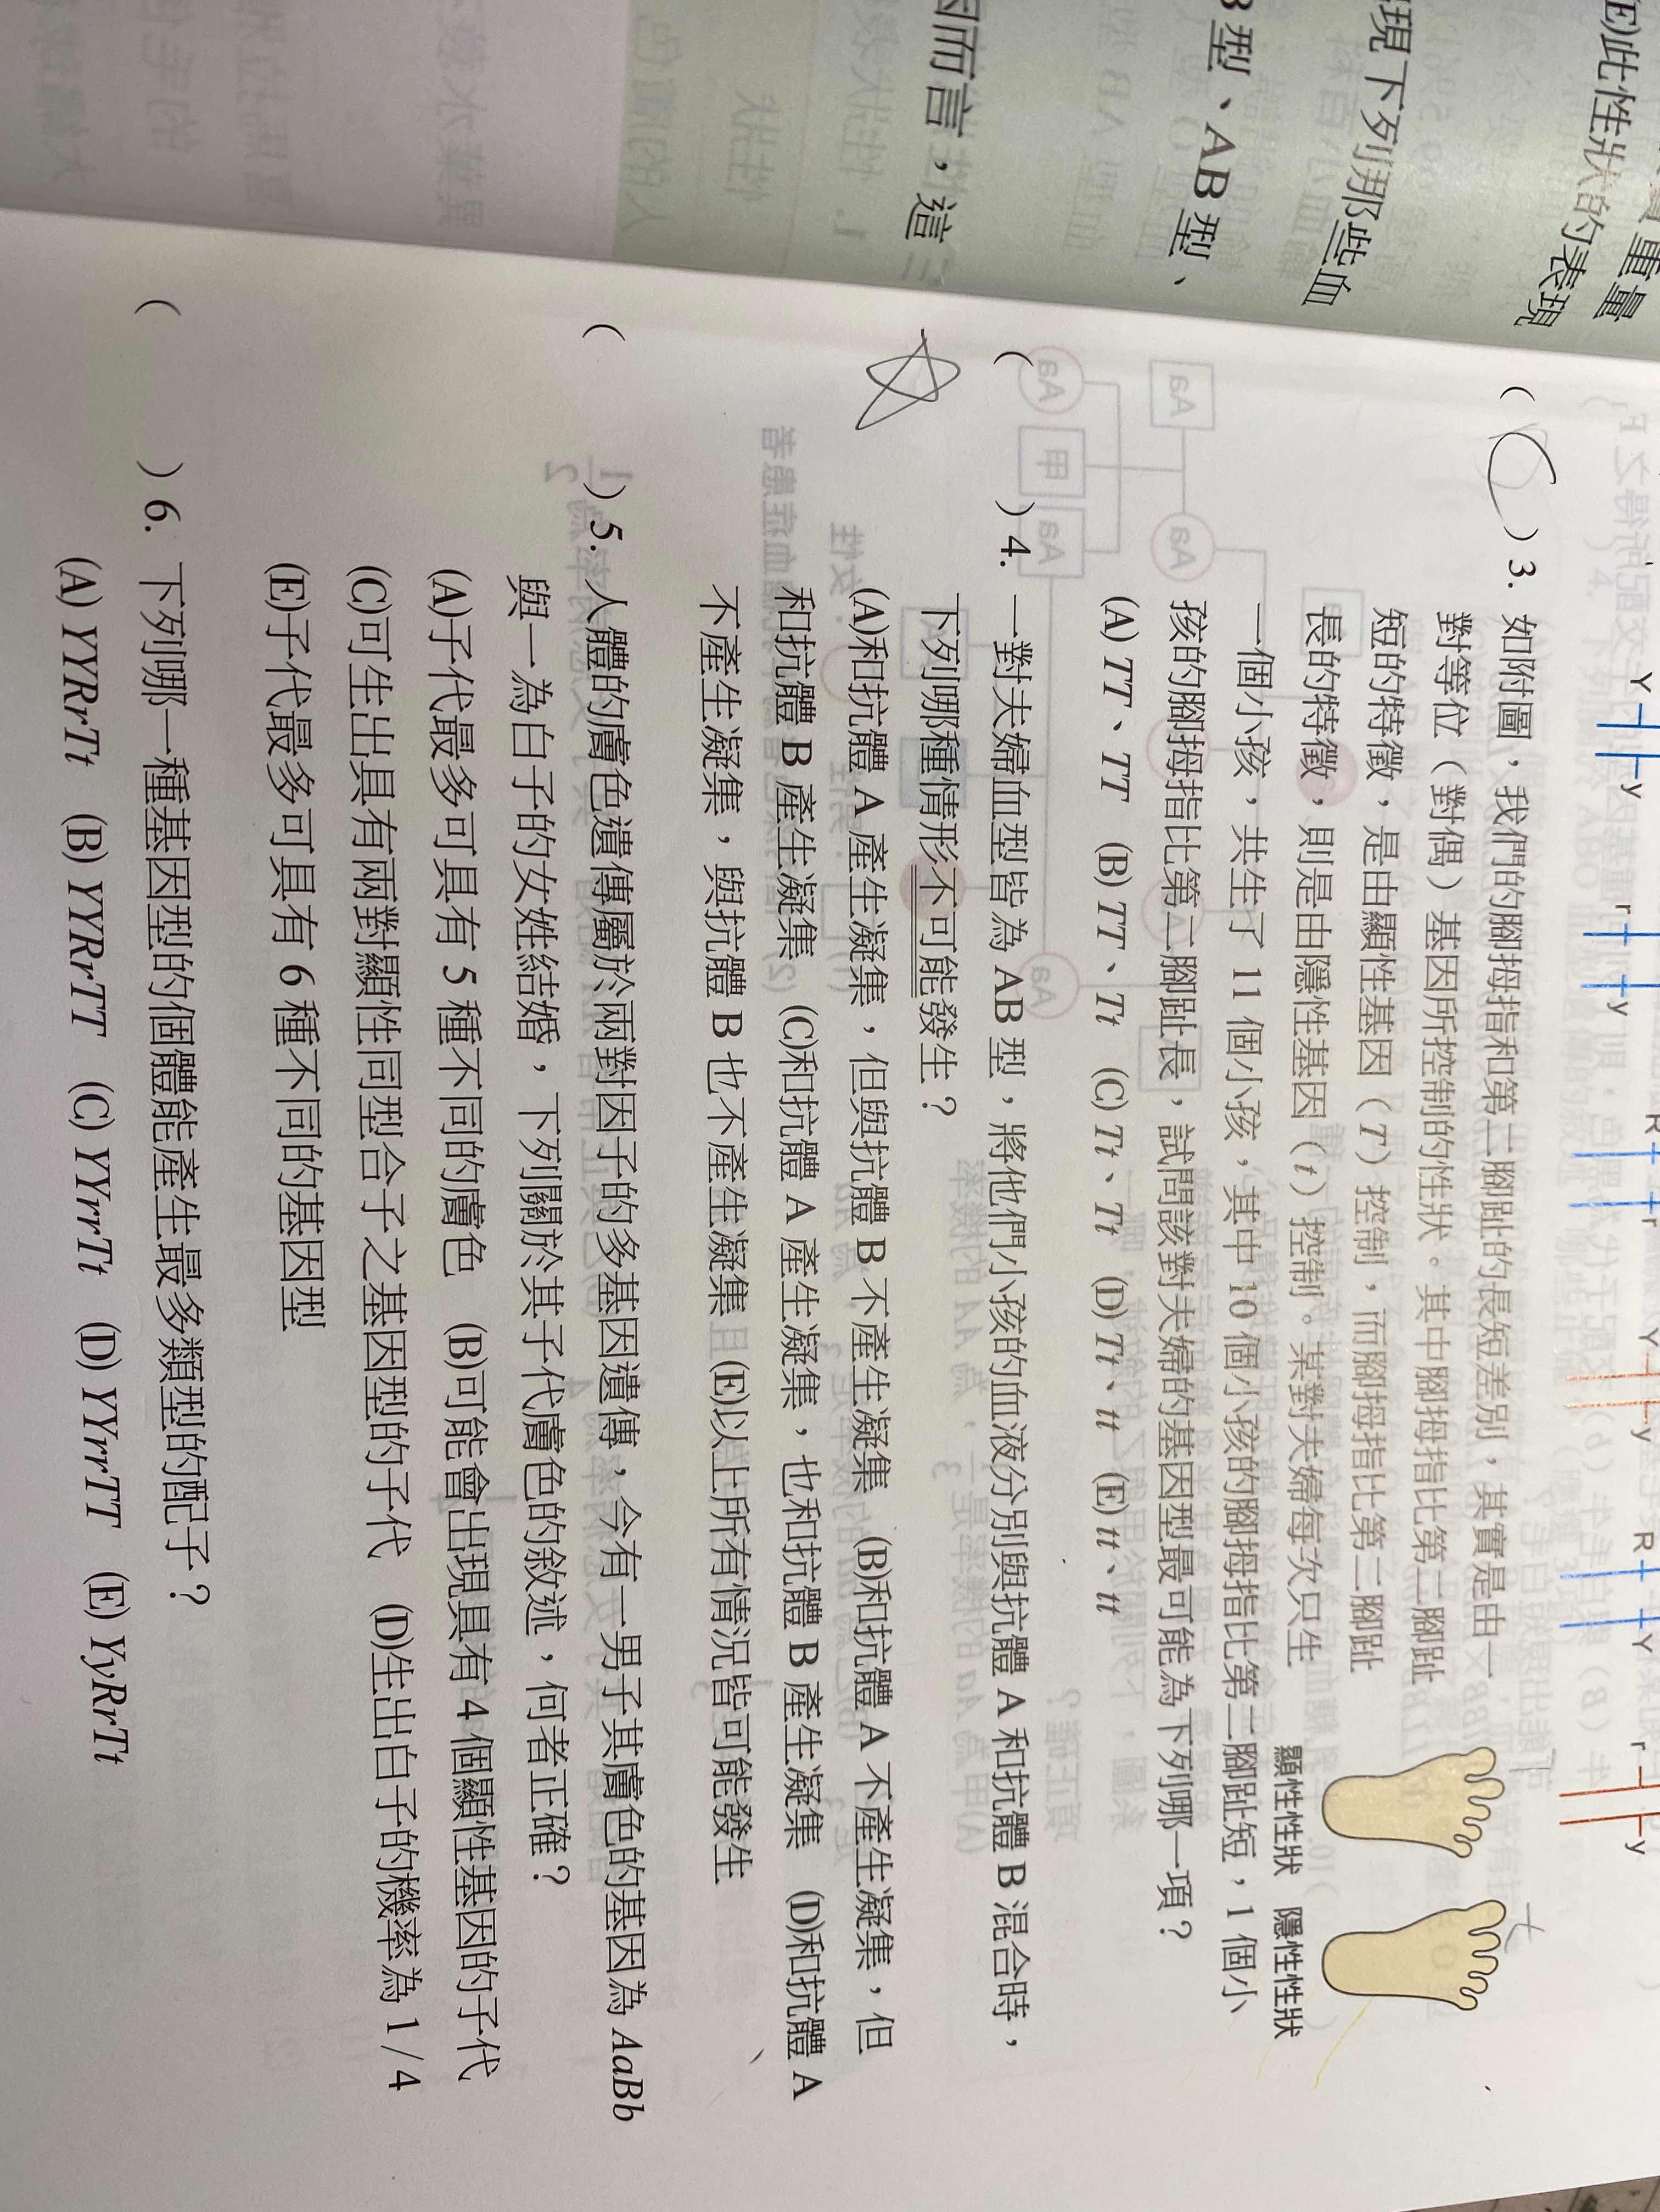 (E)此性狀的表現
重量
現下列那些血
B型、AB型、
因而言，這三
Y y r y R r Y y R Y r y
( C ) 3. 如附圖，我們的腳拇指和第二腳趾的長短差別，其實是由一
對等位（對偶）基因所控制的性狀。其中腳拇指比第二腳趾
短的特徵，是由顯性基因（T）控制，而腳拇指比第二腳趾
長的特徵，則是由隱性基因（t）控制。某對夫婦每次只生
一個小孩，共生了 11 個小孩，其中 10 個小孩的腳拇指比第二腳趾短，1 個小
孩的腳拇指比第二腳趾長，試問該對夫婦的基因型最可能為下列哪一項？
(A) TT、TT (B) TT、Tt (C) Tt、Tt (D) Tt、tt (E) tt、tt
顯性性狀 隱性性狀
( ) 4. 一對夫婦血型皆為 AB 型，將他們小孩的血液分別與抗體 A 和抗體 B 混合時，
下列哪種情形不可能發生？
(A)和抗體 A 產生凝集，但與抗體 B 不產生凝集 (B)和抗體 A 不產生凝集，但
和抗體 B 產生凝集 (C)和抗體 A 產生凝集，也和抗體 B 產生凝集 (D)和抗體 A
不產生凝集，與抗體 B 也不產生凝集 (E)以上所有情況皆可能發生
( ) 5. 人體的膚色遺傳屬於兩對因子的多基因遺傳，今有一男子其膚色的基因為 AaBb
與一為白子的女姓結婚，下列關於其子代膚色的敘述，何者正確？
(A)子代最多可具有 5 種不同的膚色 (B)可能會出現具有 4 個顯性基因的子代
(C)可生出具有兩對顯性同型合子之基因型的子代 (D)生出白子的機率為 1 / 4
(E)子代最多可具有 6 種不同的基因型
( ) 6. 下列哪一種基因型的個體能產生最多類型的配子？
(A) YYRrTt (B) YYRrTT (C) YYrrTt (D) YYrrTT (E) YyRrTt